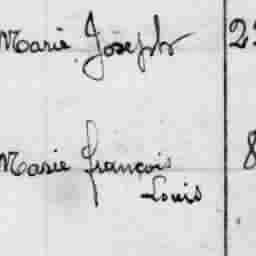 Marie Joseph 2
Marie françois 8
Louis